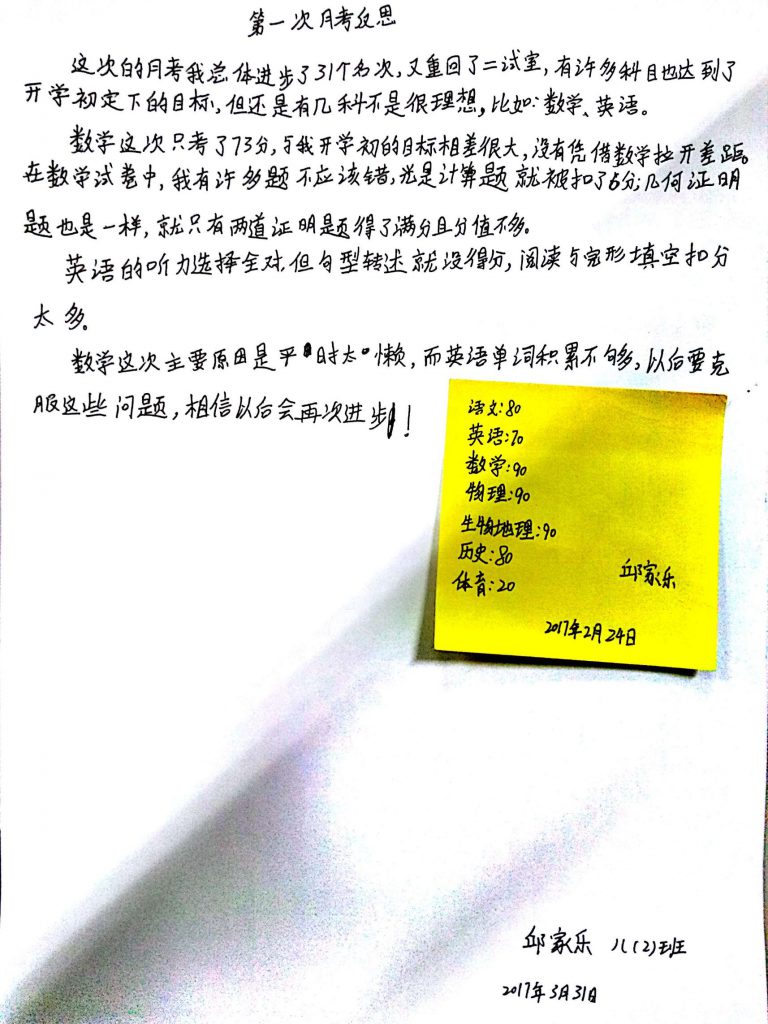 第一次月考反思
这次的月考我总体进步了31个名次,又重回了二试室,有许多科目也达到了
开学初定下的目标,但还是有几科不是很理想,比如:数学、英语。
数学这次只考了73分,与我开学初的目标相差很大,没有凭借数学拉开差距。
在数学试卷中,我有许多题不应该错,光是计算题就被扣了6分;几何证明
题也是一样,就只有两道证明题得了满分且分值不多。
英语的听力选择全对,但句型转述就没得分,阅读与完形填空扣分
太多。
数学这次主要原因是平时太懒,而英语单词积累不够多,以后要克
服这些问题,相信以后会再次进步!
语文:80
英语:70
数学:90
物理:90
生物地理:90
历史:80
体育:20
邱家乐
2017年2月24日
邱家乐 八(2)班
2017年3月31日